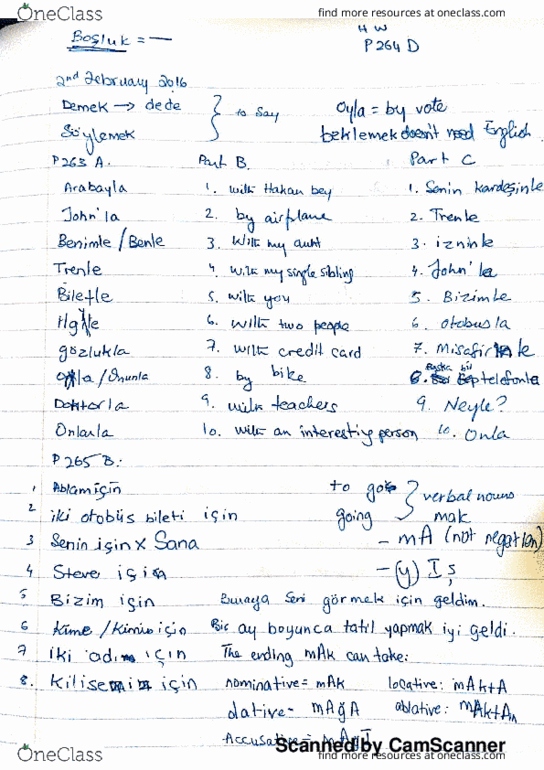 OneClass find more resources at oneclass.com
Boşluk = —
HW
P264 D
2nd February 2016
Demek → dede
Söylemek
to say
Oyla = by vote
beklemek doesn't need English
P263 A. Part B. Part C
Arabayla 1. with Hakan bey 1. Senin kardeşinle
John'la 2. by airplane 2. Trenle
Benimle/Benle 3. With my aunt 3. izninle
Trenle 4. with my single sibling 4. John'la
Biletle 5. with you 5. Bizimle
6. with two people 6. otobusla
gözlukla 7. with credit card 7.
/Onunla 8. by bike Başka bir telefonla
Doktorla 9. with teachers 9. Neyle?
Onlarla 10. with an interesting person 10. Onla
P265 B:
1 Ablam için
2 iki otobüs bileti için
3 Senin için x Sana
4 Steve için
5 Bizim için
6 Kime/Kimin için
7 iki için
8. için
to go
going
verbal nouns
mak
- mA (not negation)
- (y) Iş
Buraya seni görmek için geldim.
Bir ay boyunca tatil yapmak iyi geldi.
The ending mAk can take:
nominative = mAk locative: mAktA
dative = mAğA ablative: mAktAn
Accusative = mAğI
Scanned by CamScanner
OneClass find more resources at oneclass.com